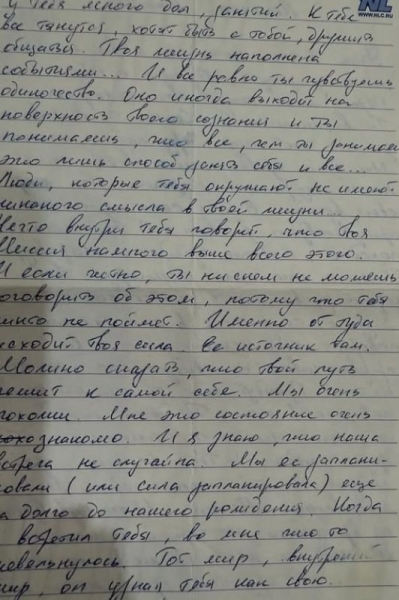 NL
www.nlc.ru
у тебя много дел, занятий. К тебе
все тянутся, хотят быть с тобой, дружить
общаться. Твоя жизнь наполнена
событиями... И все ровно ты чувствуешь
одиночество. Оно иногда выходит на
поверхность твоего сознания и ты
понимаешь, что все, чем ты занимаеш
это лишь способ занять себя и все...
Люди, которые тебя окружают не имеют
никакого смысла в твоей жизни...
Нечто внутри тебя говорит, что твоя
Миссия намного выше всего этого.
И если честно, ты ни с кем не можешь
оговорить об этом, потому что тебя
никто не поймет. Именно от туда
исходит твоя сила. Ее источник там.
Можно сказать, что твой путь
лежит к самой себе. Мы очень
похожи. Мне это состояние очень
знакомо. И я знаю, что наша
встреча не случайна. Мы ее заплани-
ровали (или сила запланировала) еще
за долго до нашего рождения. Когда
встретил тебя, во мне что то
шевельнулось. Тот мир, внутрений
мир, он узнал тебя как свою.